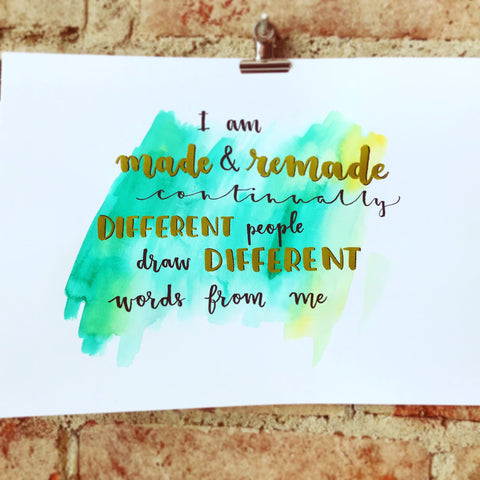 I am
made & remade
continually
DIFFERENT people
draw DIFFERENT
words from me